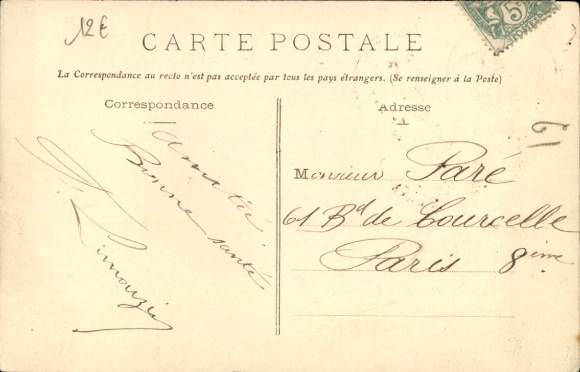 12€
CARTE POSTALE
La Correspondance au recto n'est pas acceptée par tous les pays étrangers. (Se renseigner à la Poste)
Correspondance
Amitié
Bonne santé
Limouzin
Adresse
Monsieur Faré
61 Bd de Courcelle
Paris 8ème
5